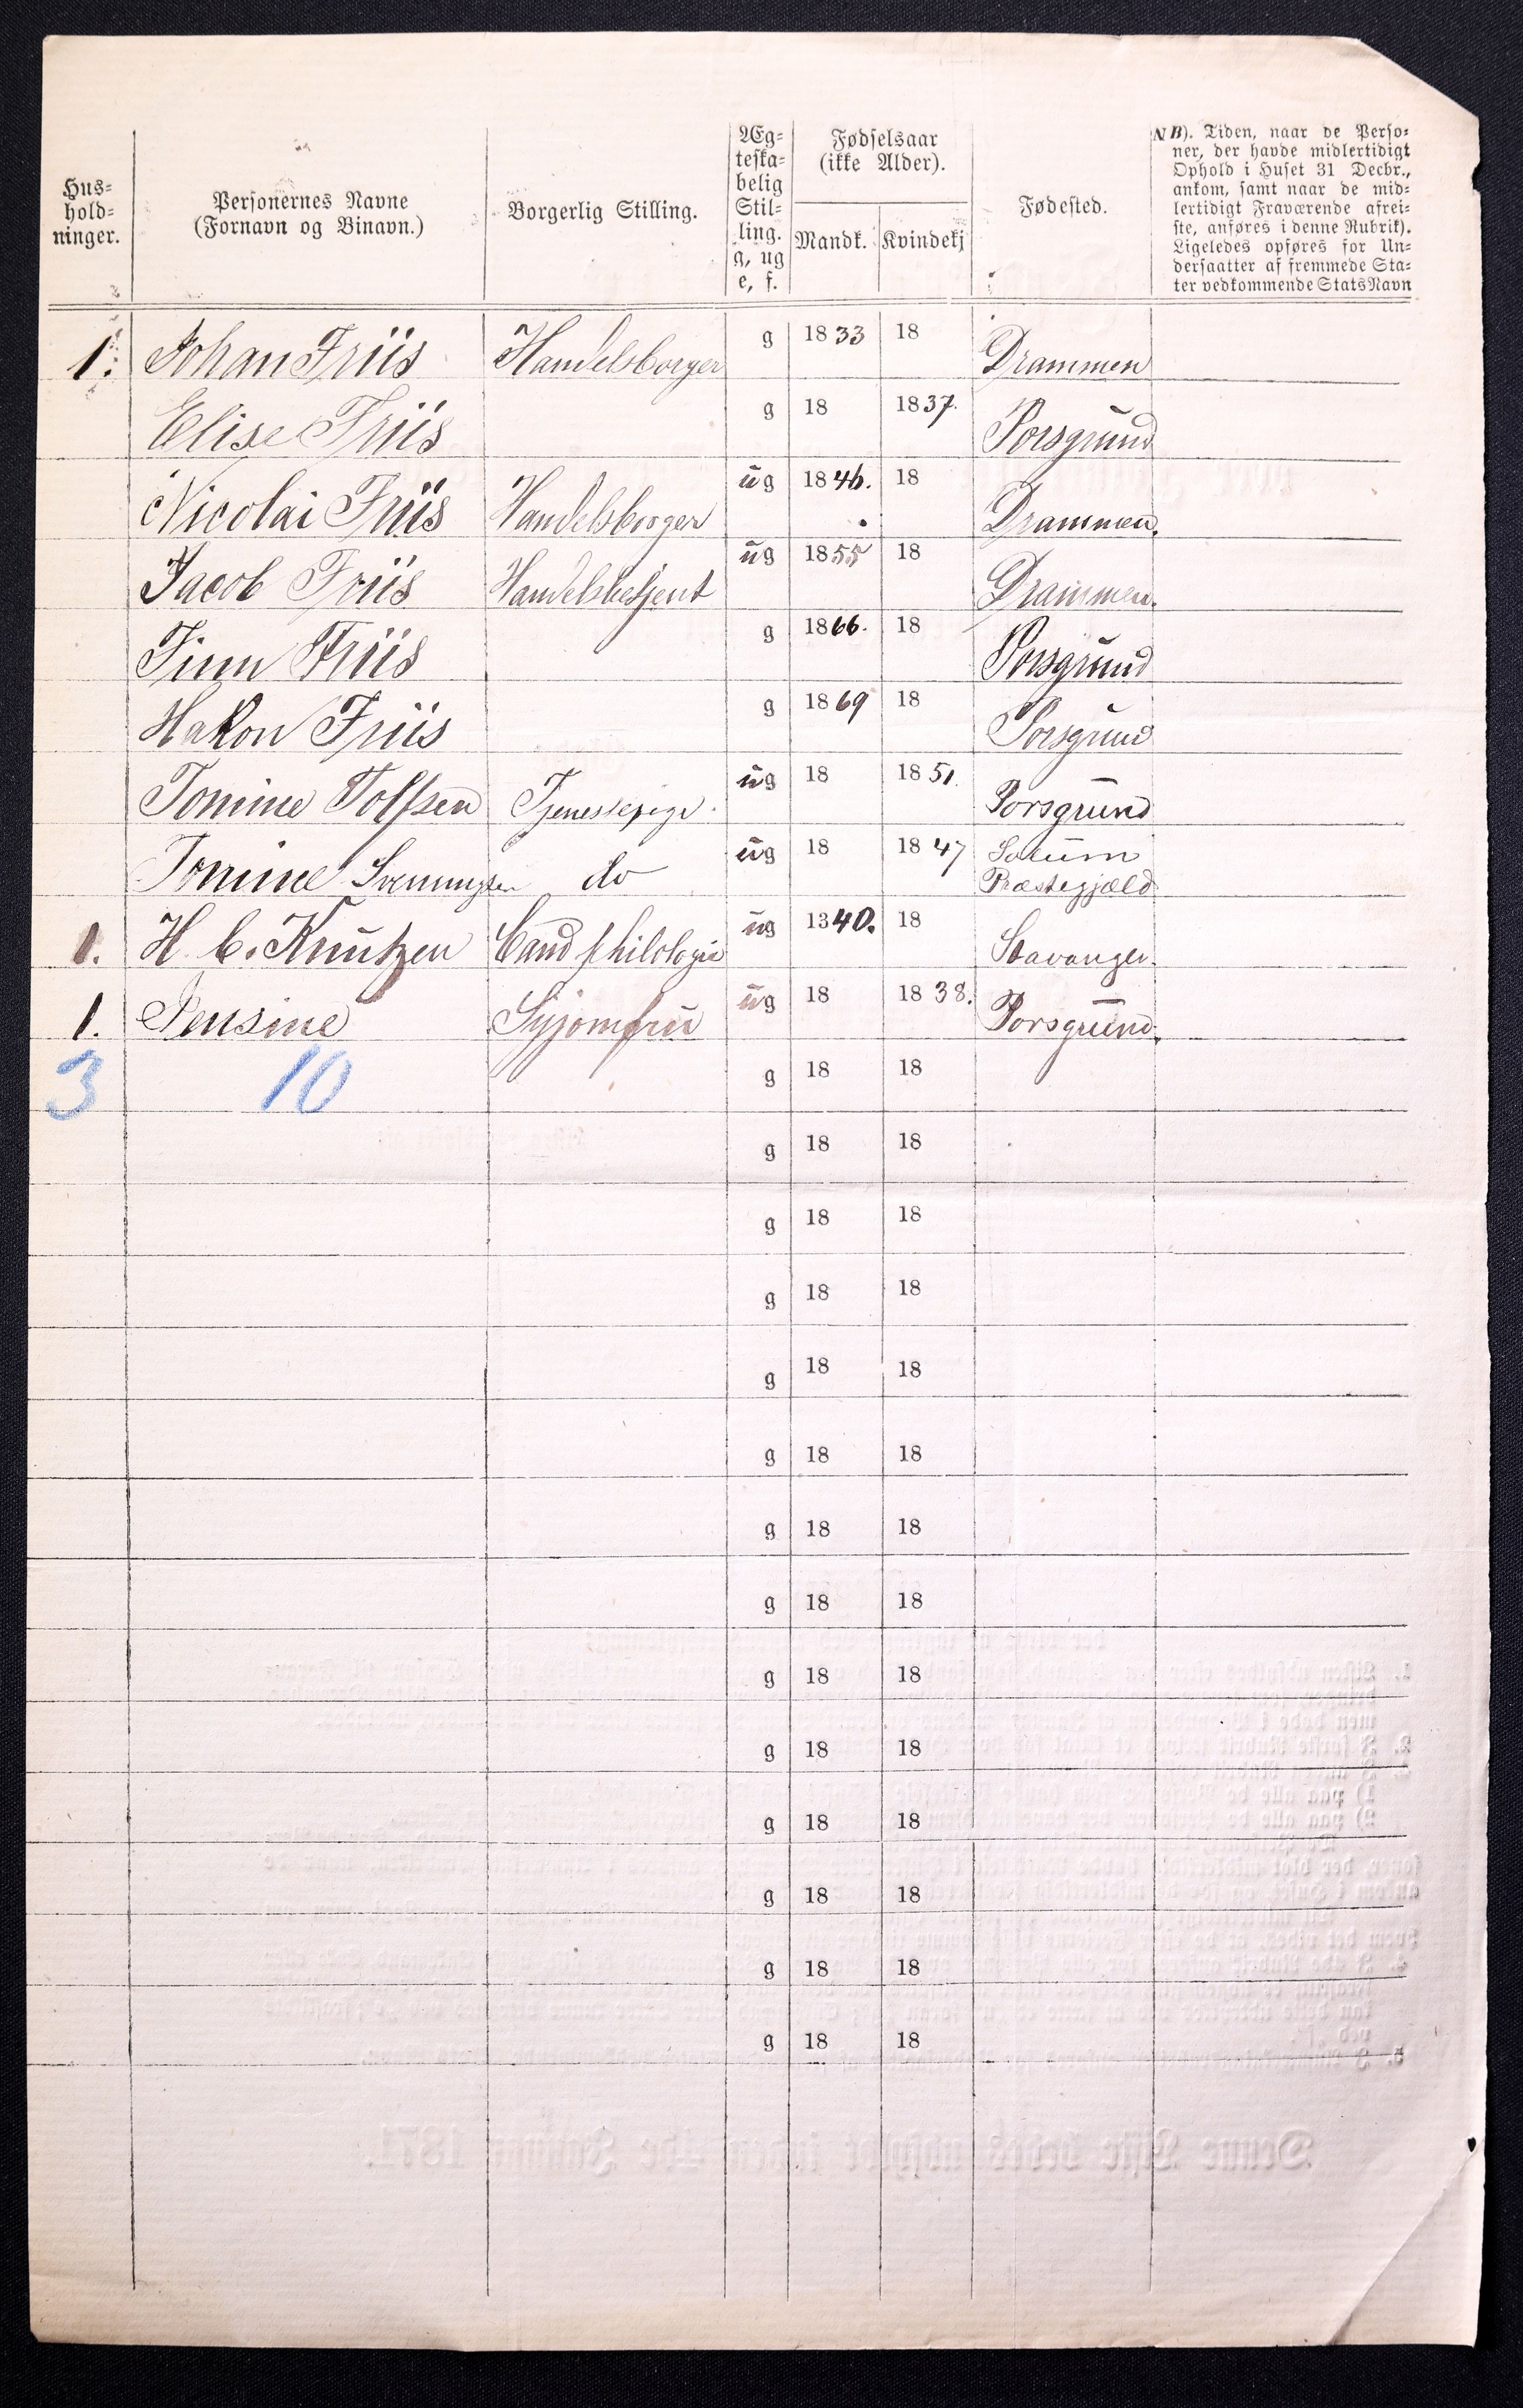 Hus=
hold=
ninger.
Personernes Navne
(Fornavn og Binavn.)
Borgerlig Stilling.
Æg=
teska=
belig
Stil=
ling.
g, ug
e, f.
Fødselsaar
(ikke Alder).
Mandk. Kvindekj
Fødested.
NB). Tiden, naar de Perso=
ner, der havde midlertidigt
Ophold i Huset 31 Decbr.,
ankom, samt naar de mid=
lertidigt Fraværende afrei=
ste, anføres i denne Rubrik).
Ligeledes opføres for Un=
dersaatter af fremmede Sta=
ter vedkommende Stats Navn
1. Johan Friis Handelsborger g 1833 18 Drammen
Elise Friis g 18 1837. Porsgrund
Nicolai Friis Handelsborger ug 1846. 18 Drammen.
Jacob Friis Handelsbetjent ug 1855 18 Drammen.
Finn Friis g 1866. 18 Porsgrund
Hakon Friis g 1869 18 Porsgrund
Tomine Tolfsen Tjenestepige. ug 18 1851. Porsgrund
Tomine Svenningsen do ug 18 1847 Solum
Præstegjæld
1. H. C. Knutzen Cand philologie ug 1340. 18 Stavanger.
1. Pensine Syjomfru ug 18 1838. Porsgrund.
3 10 g 18 18
g 18 18
g 18 18
g 18 18
g 18 18
g 18 18
g 18 18
g 18 18
g 18 18
g 18 18
g 18 18
g 18 18
g 18 18
g 18 18